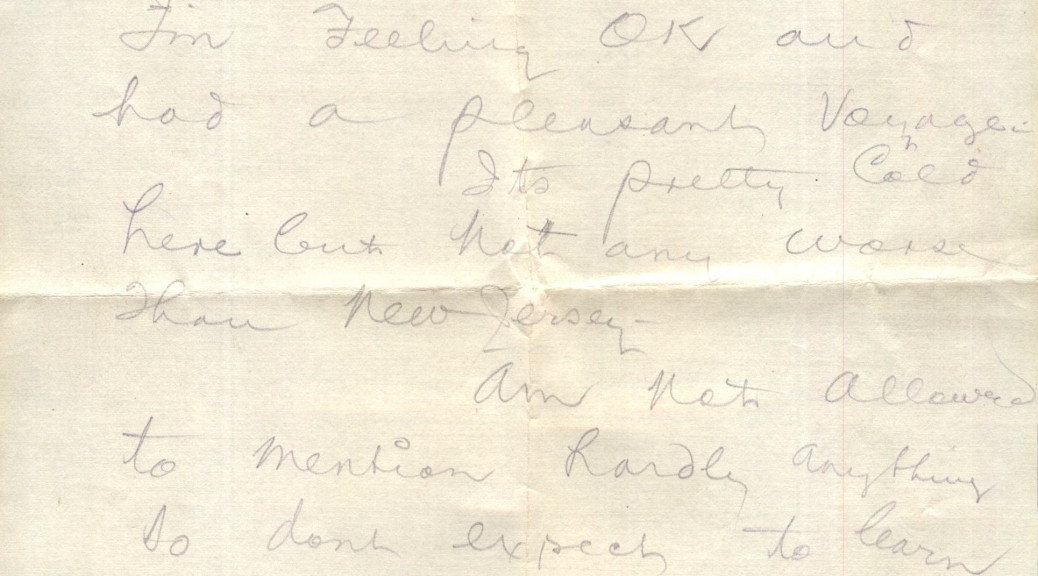 I'm Feeling OK and
had a pleasant Voyage.
Its pretty Cold
here but Not any worse
Than New Jersey-
Am Not allowed
to Mention hardly anything
so dont expect to learn